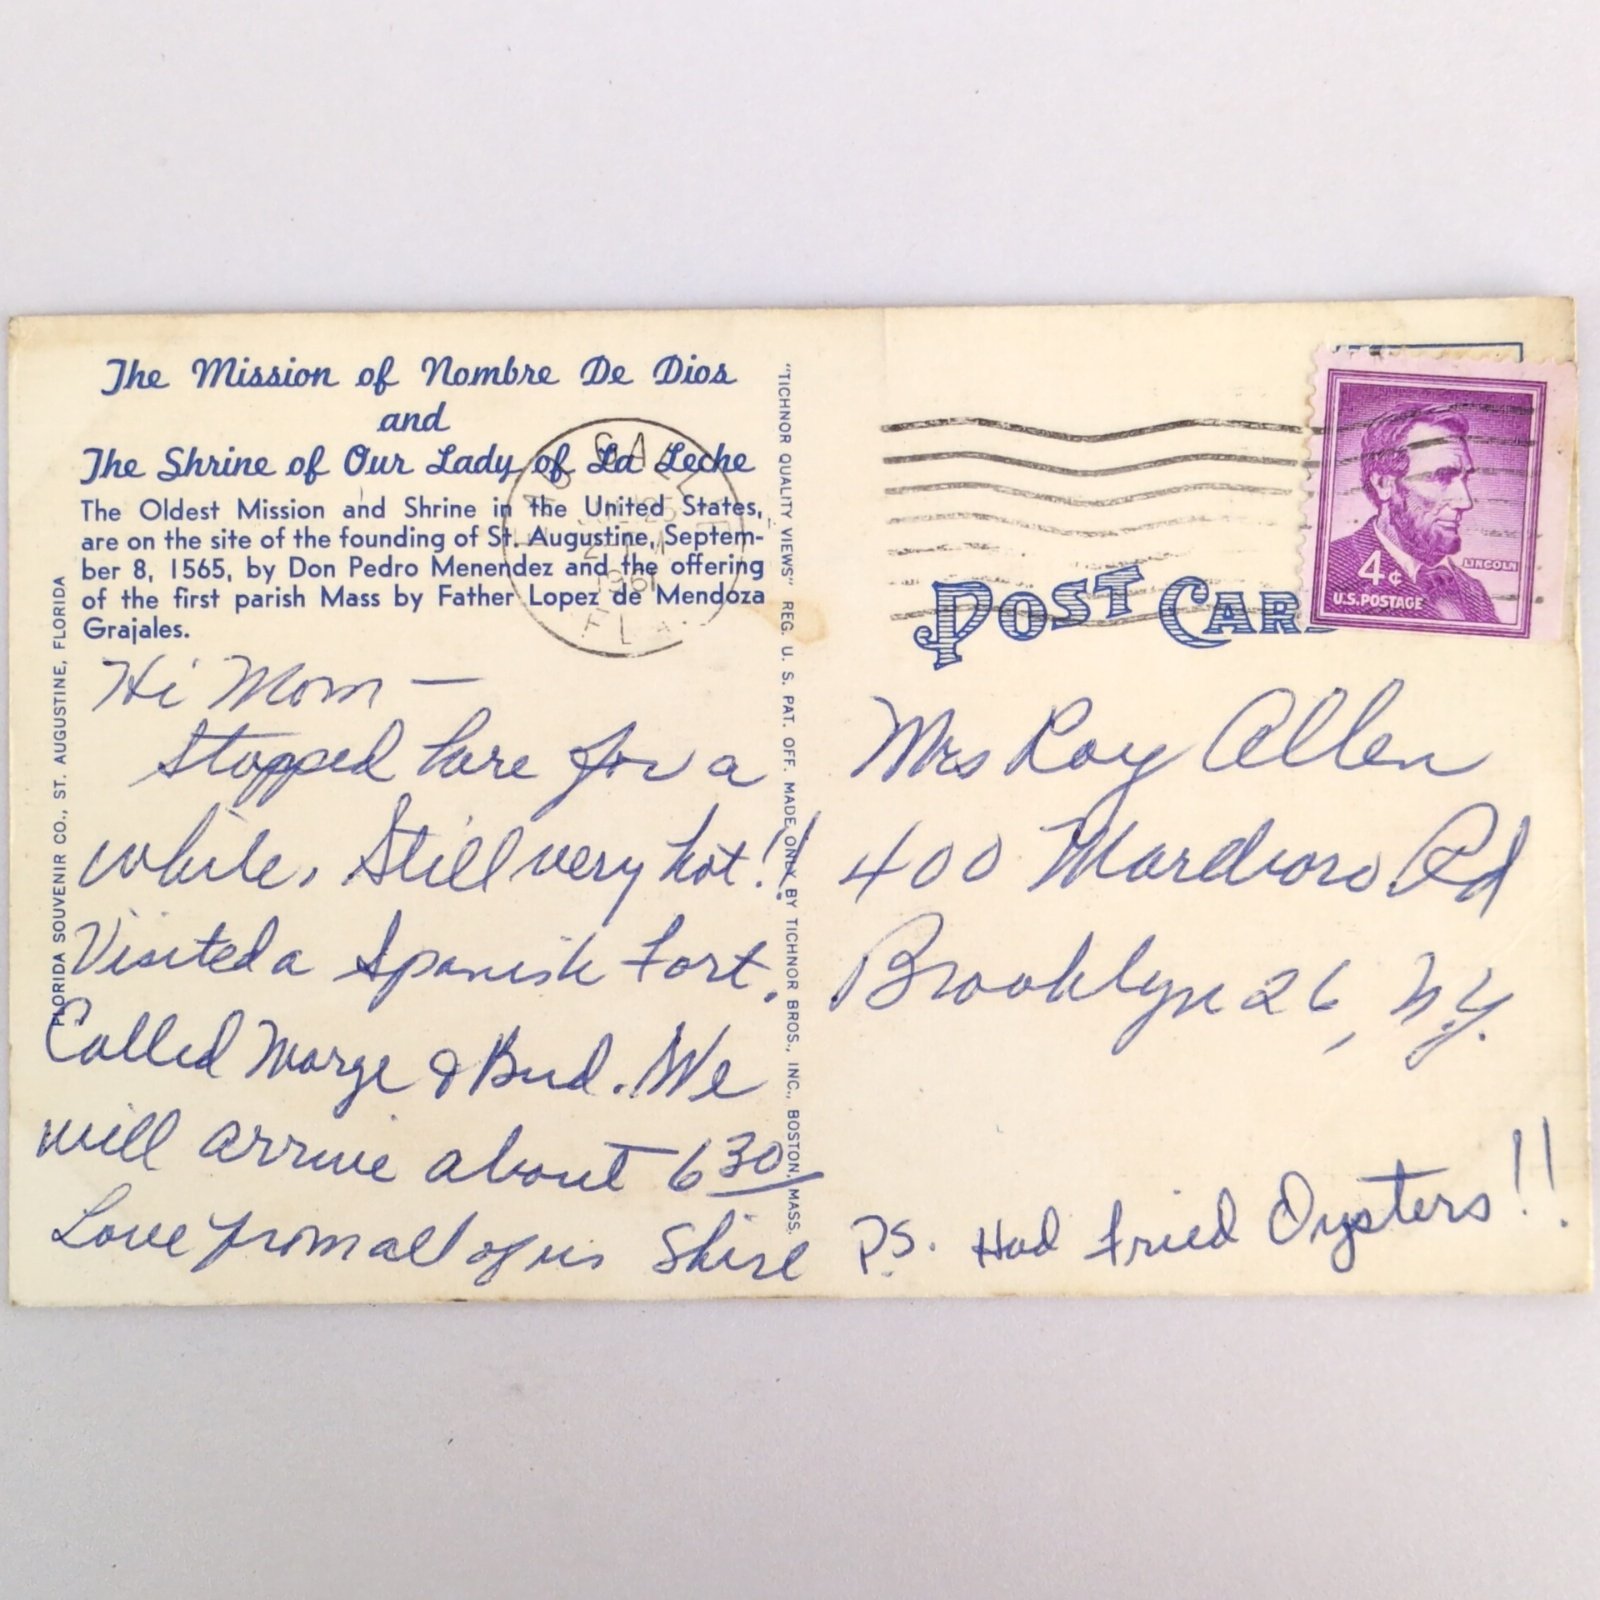 The Mission of Nombre De Dios
and
The Shrine of Our Lady of La Leche
The Oldest Mission and Shrine in the United States,
are on the site of the founding of St. Augustine, Septem-
ber 8, 1565, by Don Pedro Menendez and the offering
of the first parish Mass by Father Lopez de Mendoza
Grajales.
FLORIDA SOUVENIR CO., ST. AUGUSTINE, FLORIDA
Hi Mom —
Stopped here for a
while. Still very hot!!
Visited a Spanish Fort.
Called Marge & Bud. We
will arrive about 6 30
Love from all of us
"TICHNOR QUALITY VIEWS" REG. U. S. PAT. OFF. MADE ONLY BY TICHNOR BROS., INC., BOSTON, MASS.
1961
FLA.
POST CAR
4¢
LINCOLN
U.S. POSTAGE
Mrs Roy Allen
400 Marlboro Rd
Brooklyn 26, N.Y.
P.S. Had Fried Oysters!!